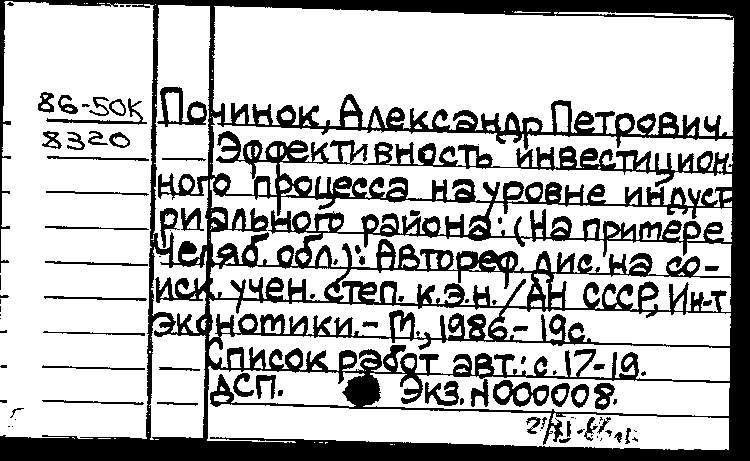 86-50К Починок, Александр Петрович.
8320 Эффективность инвестицион-
ного процесса на уровне индуст-
риального района: (На примере
Челяб. обл.): Автореф. дис. на со-
иск. учен. степ. к.э.н. / АН СССР, Ин-т
экономики. - М., 1986. - 19с.
Список работ авт.: с. 17-19.
ДСП. Экз. N000008.